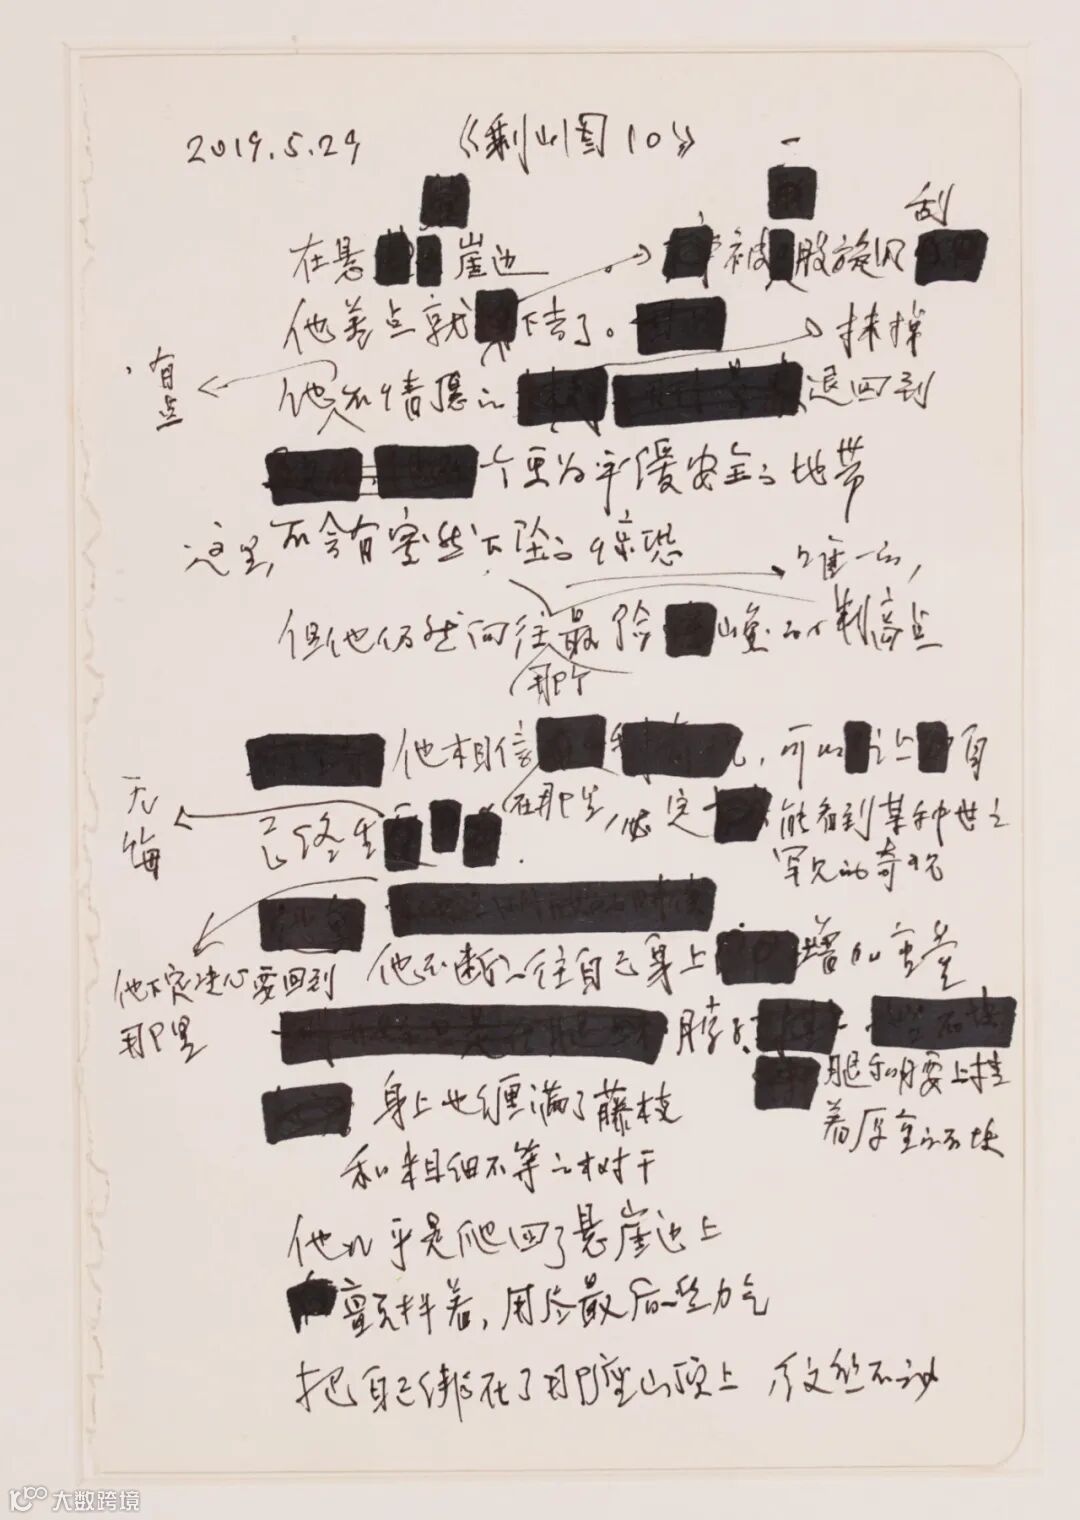 2019.5.29 《剩山图10》
一
刮
在悬 崖边 被 股旋风
他差点就 下去了。
抹掉
有点
他不情愿的 退回到
个更为平缓安全的地带
这里,不会有突然下坠的惊恐
唯一的,
但他仍然向往最险 山峦的 制高点
那个
他相信 , 可以 让 自
无悔
己终生
在那里,必定 能看到某种世上
罕见的奇观
他下定决心要回到
那里
他不断的往自己身上 增加重量
脖子
腿和腰上挂
着厚重的石块
身上也缠满了藤枝
和粗细不等的树干
他几乎是爬回了悬崖边上
颤抖着,用尽最后一些力气
把自己绑在了那座山顶上 纹丝不动
大数跨境